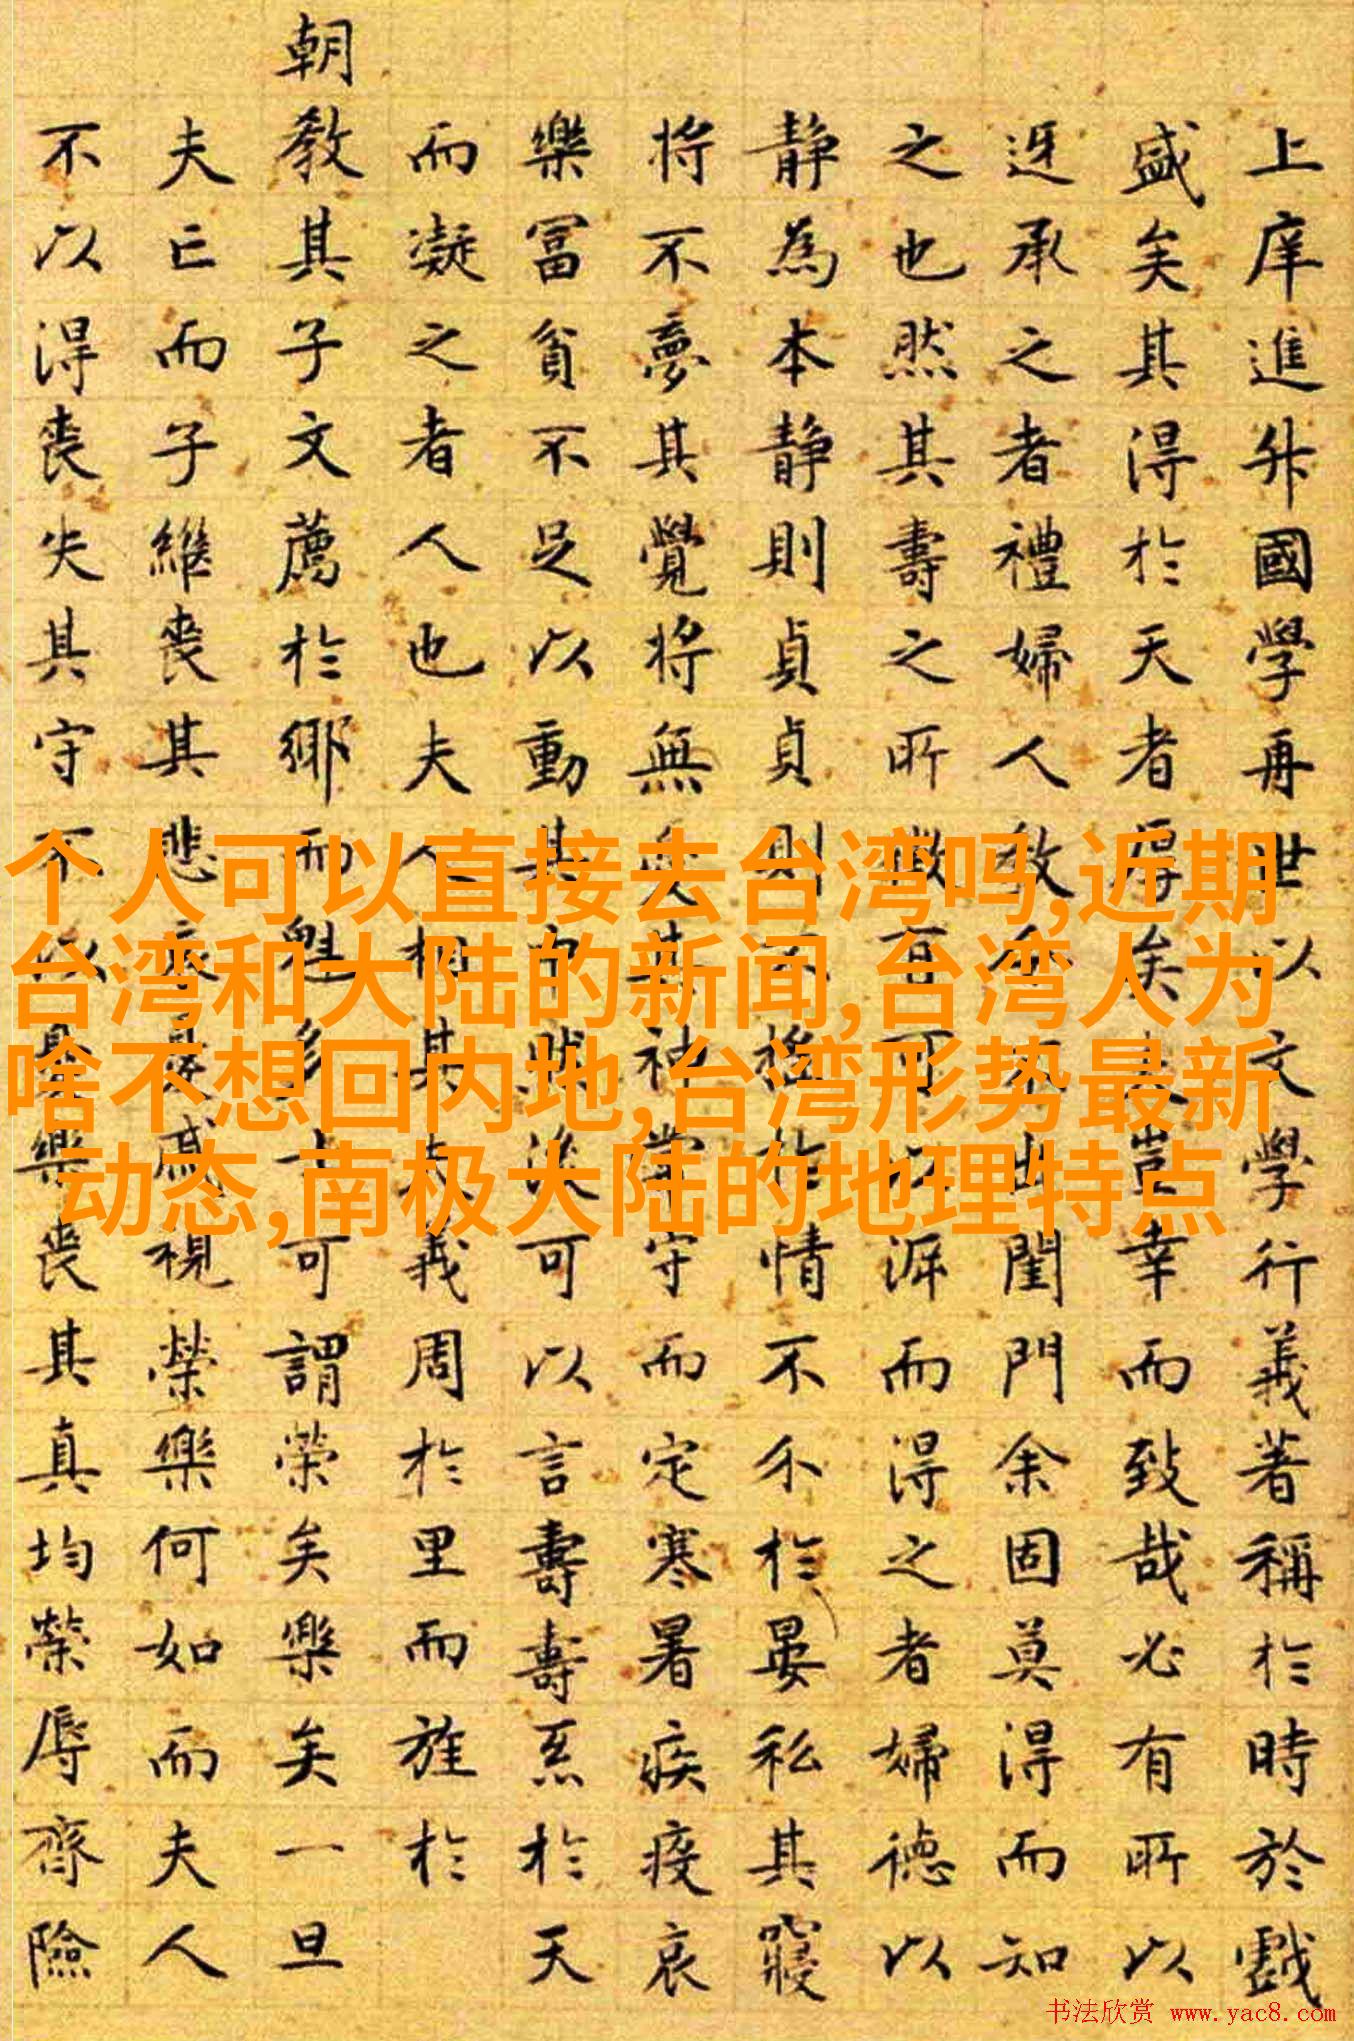 上庠進升國學再世以文學行義著稱於時於戲
盛矣其得於天者厚矣夫豈幸而致哉必有所以
迓承之者禮婦人教令不出閨門余固莫得而知
之也然其壽之所徵有可以涯而得之者婦德以
静為本静則貞貞則不於情不介於晏私其寢
將不夢其覺將無其神常守而定寒暑疾疫哀
樂冨貧不足以動其中然後可以言壽壽系於天
而凝之者人也夫人相其夫義周於里而旌於
朝教其子文薦於鄉而魁多士可謂榮矣樂矣一旦
夫亡而子繼喪其悲哀憂戚視榮樂何如而夫人
不以得喪失其守不以樂喪其真均榮辱齊險
个人可以直接去台湾吗,近期
台湾和大陆的新闻,台湾人为
啥不想回内地,台湾形势最新
动态,南极大陆的地理特点
书法欣赏 www.yac8.com